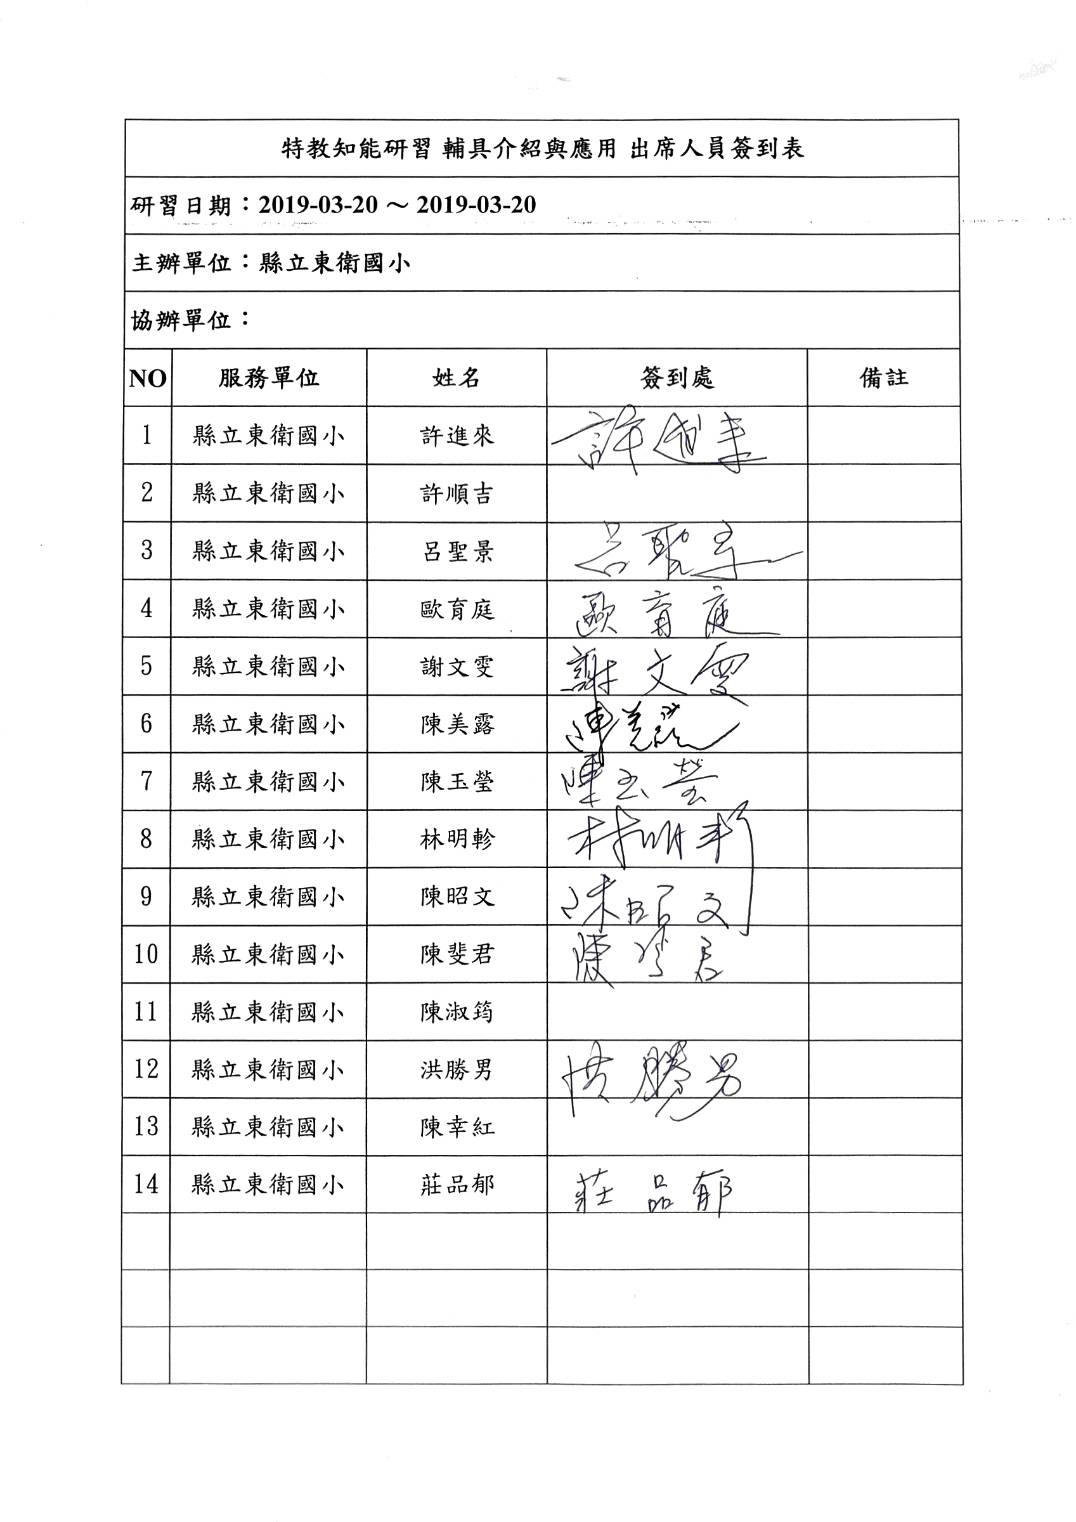 特教知能研習 輔具介紹與應用 出席人員簽到表
研習日期：2019-03-20 ～ 2019-03-20
主辦單位：縣立東衛國小
協辦單位：
NO 服務單位 姓名 簽到處 備註
1 縣立東衛國小 許進來 許進来
2 縣立東衛國小 許順吉
3 縣立東衛國小 呂聖景 呂聖景
4 縣立東衛國小 歐育庭 歐育庭
5 縣立東衛國小 謝文雯 謝文雯
6 縣立東衛國小 陳美露 陳美露
7 縣立東衛國小 陳玉瑩 陳玉瑩
8 縣立東衛國小 林明軫 林明軫
9 縣立東衛國小 陳昭文 陳昭文
10 縣立東衛國小 陳斐君 陳斐君
11 縣立東衛國小 陳淑筠
12 縣立東衛國小 洪勝男 洪勝男
13 縣立東衛國小 陳幸紅
14 縣立東衛國小 莊品郁 莊品郁